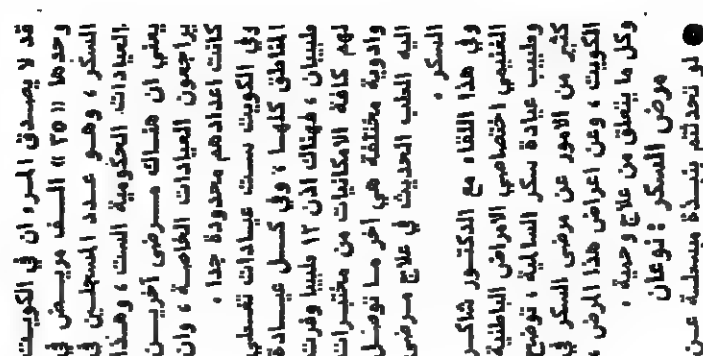 قد لا يصدق المرء ان في الكويت
وحدها « ٢٥ » الف مريض في
السكر ، وهو عدد المسجلين في
العيادات الحكومية الست ، وهذا
يعني ان هناك مرضى آخرين
يراجعون العيادات الخاصة ، وان
كانت اعدادهم محدودة جدا .
وفي الكويت ست عيادات تغطي
المناطق كلها ، وفي كل عيادة
طبيبان ، فهناك اذن ١٢ طبيبا وفرت
لهم كافة الامكانيات من مختبرات
وادوية مختلفة هي آخر ما توصل
اليه الطب الحديث في علاج مرضى
السكر .
وفي هذا اللقاء مع الدكتور شاكر
الغنيمي اختصاصي الامراض الباطنية
وطبيب عيادة سكر السالمية ، توضح
كثير من الامور عن مرضى السكر في
الكويت ، وعن اعراض هذا المرض ،
وكل ما يتعلق من علاج وحمية .
مرض السكر : نوعان
● لو تحدثتم بنبذة مبسطة عن